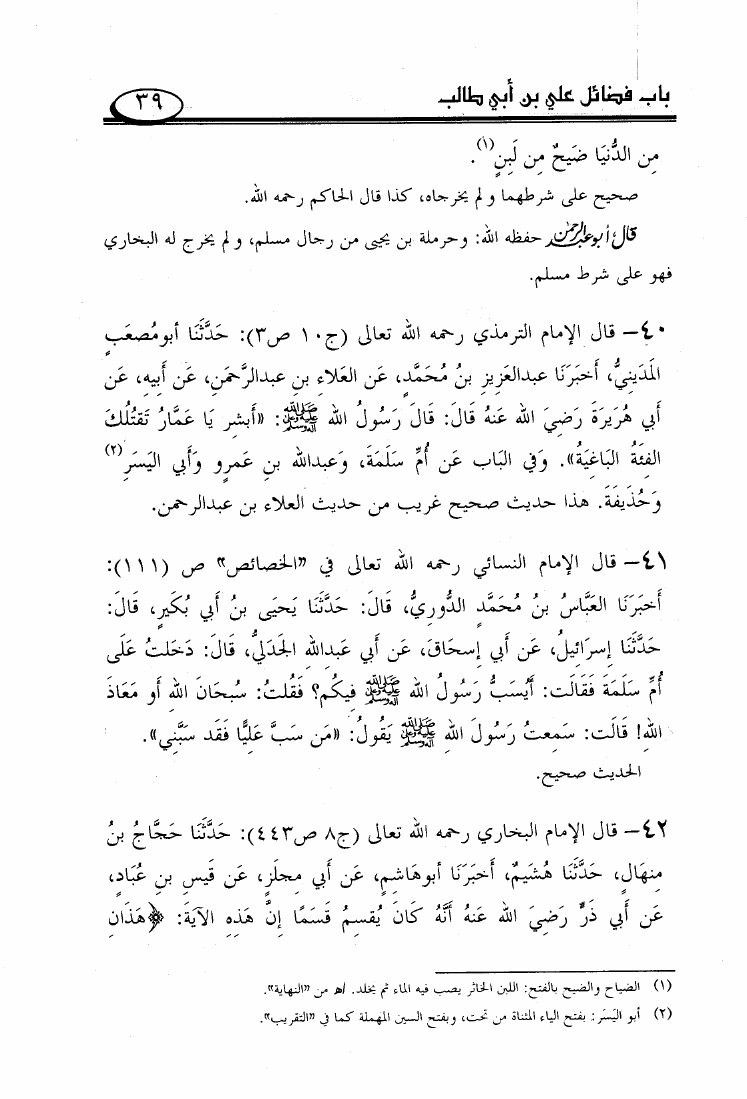 باب فضائل علي بن أبي طالب
٣٩
مِن الدُّنيَا ضَيحٌ مِن لَبنٍ(١).
صحيح على شرطهما و لم يخرجاه، كذا قال الحاكم رحمه الله.
قال أبو عبدالرحمن حفظه الله: وحرملة بن يحيى من رجال مسلم، و لم يخرج له البخاري
فهو على شرط مسلم.
٤٠– قال الإمام الترمذي رحمه الله تعالى (ج١٠ ص٣): حَدَّثَنَا أبومُصعَبٍ
المَدِينِيُّ، أَخبَرَنَا عبدالعَزِيزِ بنُ مُحَمَّدٍ، عَن العَلاءِ بنِ عبدالرَّحمَنِ، عَن أَبِيهِ، عَن
أَبِي هُرَيرَةَ رَضِيَ الله عَنهُ قَالَ: قَالَ رَسُولُ الله ﷺ: «أَبشِر يَا عَمَّارُ تَقتُلُكَ
الفِئَةُ البَاغِيَةُ». وَفِي البَاب عَن أُمِّ سَلَمَةَ، وَعبدالله بنِ عَمرٍو وَأَبِي اليَسَرِ(٢)
وَحُذَيفَةَ. هذا حديث صحيح غريب من حديث العلاء بن عبدالرحمن.
٤١– قال الإمام النسائي رحمه الله تعالى في «الخصائص» ص (١١١):
أَخبَرَنَا العَبَّاسُ بنُ مُحَمَّدٍ الدُّورِيُّ، قَالَ: حَدَّثَنَا يَحيَى بنُ أَبِي بُكَيرٍ، قَالَ:
حَدَّثَنَا إِسرَائِيلُ، عَن أَبِي إِسحَاقَ، عَن أَبِي عَبدِالله الجَدَلِيِّ، قَالَ: دَخَلتُ عَلَى
أُمِّ سَلَمَةَ فَقَالَت: أَيُسَبُّ رَسُولُ الله ﷺ فِيكُم؟ فَقُلتُ: سُبحَانَ الله أَو مَعَاذَ
الله! قَالَت: سَمِعتُ رَسُولَ الله ﷺ يَقُولُ: «مَن سَبَّ عَلِيًّا فَقَد سَبَّنِي».
الحديث صحيح.
٤٢– قال الإمام البخاري رحمه الله تعالى (ج٨ ص٤٤٣): حَدَّثَنَا حَجَّاجُ بنُ
مِنهَالٍ، حَدَّثَنَا هُشَيمٌ، أَخبَرَنَا أبوهَاشِمٍ، عَن أَبِي مِجلَزٍ، عَن قَيسِ بنِ عُبَادٍ،
عَن أَبِي ذَرٍّ رَضِيَ الله عَنهُ أَنَّهُ كَانَ يُقسِمُ قَسَمًا إِنَّ هَذِهِ الآيَةَ: ﴿هَذَانِ
(١) الضياح والضيح بالفتح: اللبن الخاثر يصب فيه الماء ثم يخلد. اهـ من «النهاية».
(٢) أبو اليَسَر: بفتح الياء المثناة من تحت، وبفتح السين المهملة كما في «التقريب».